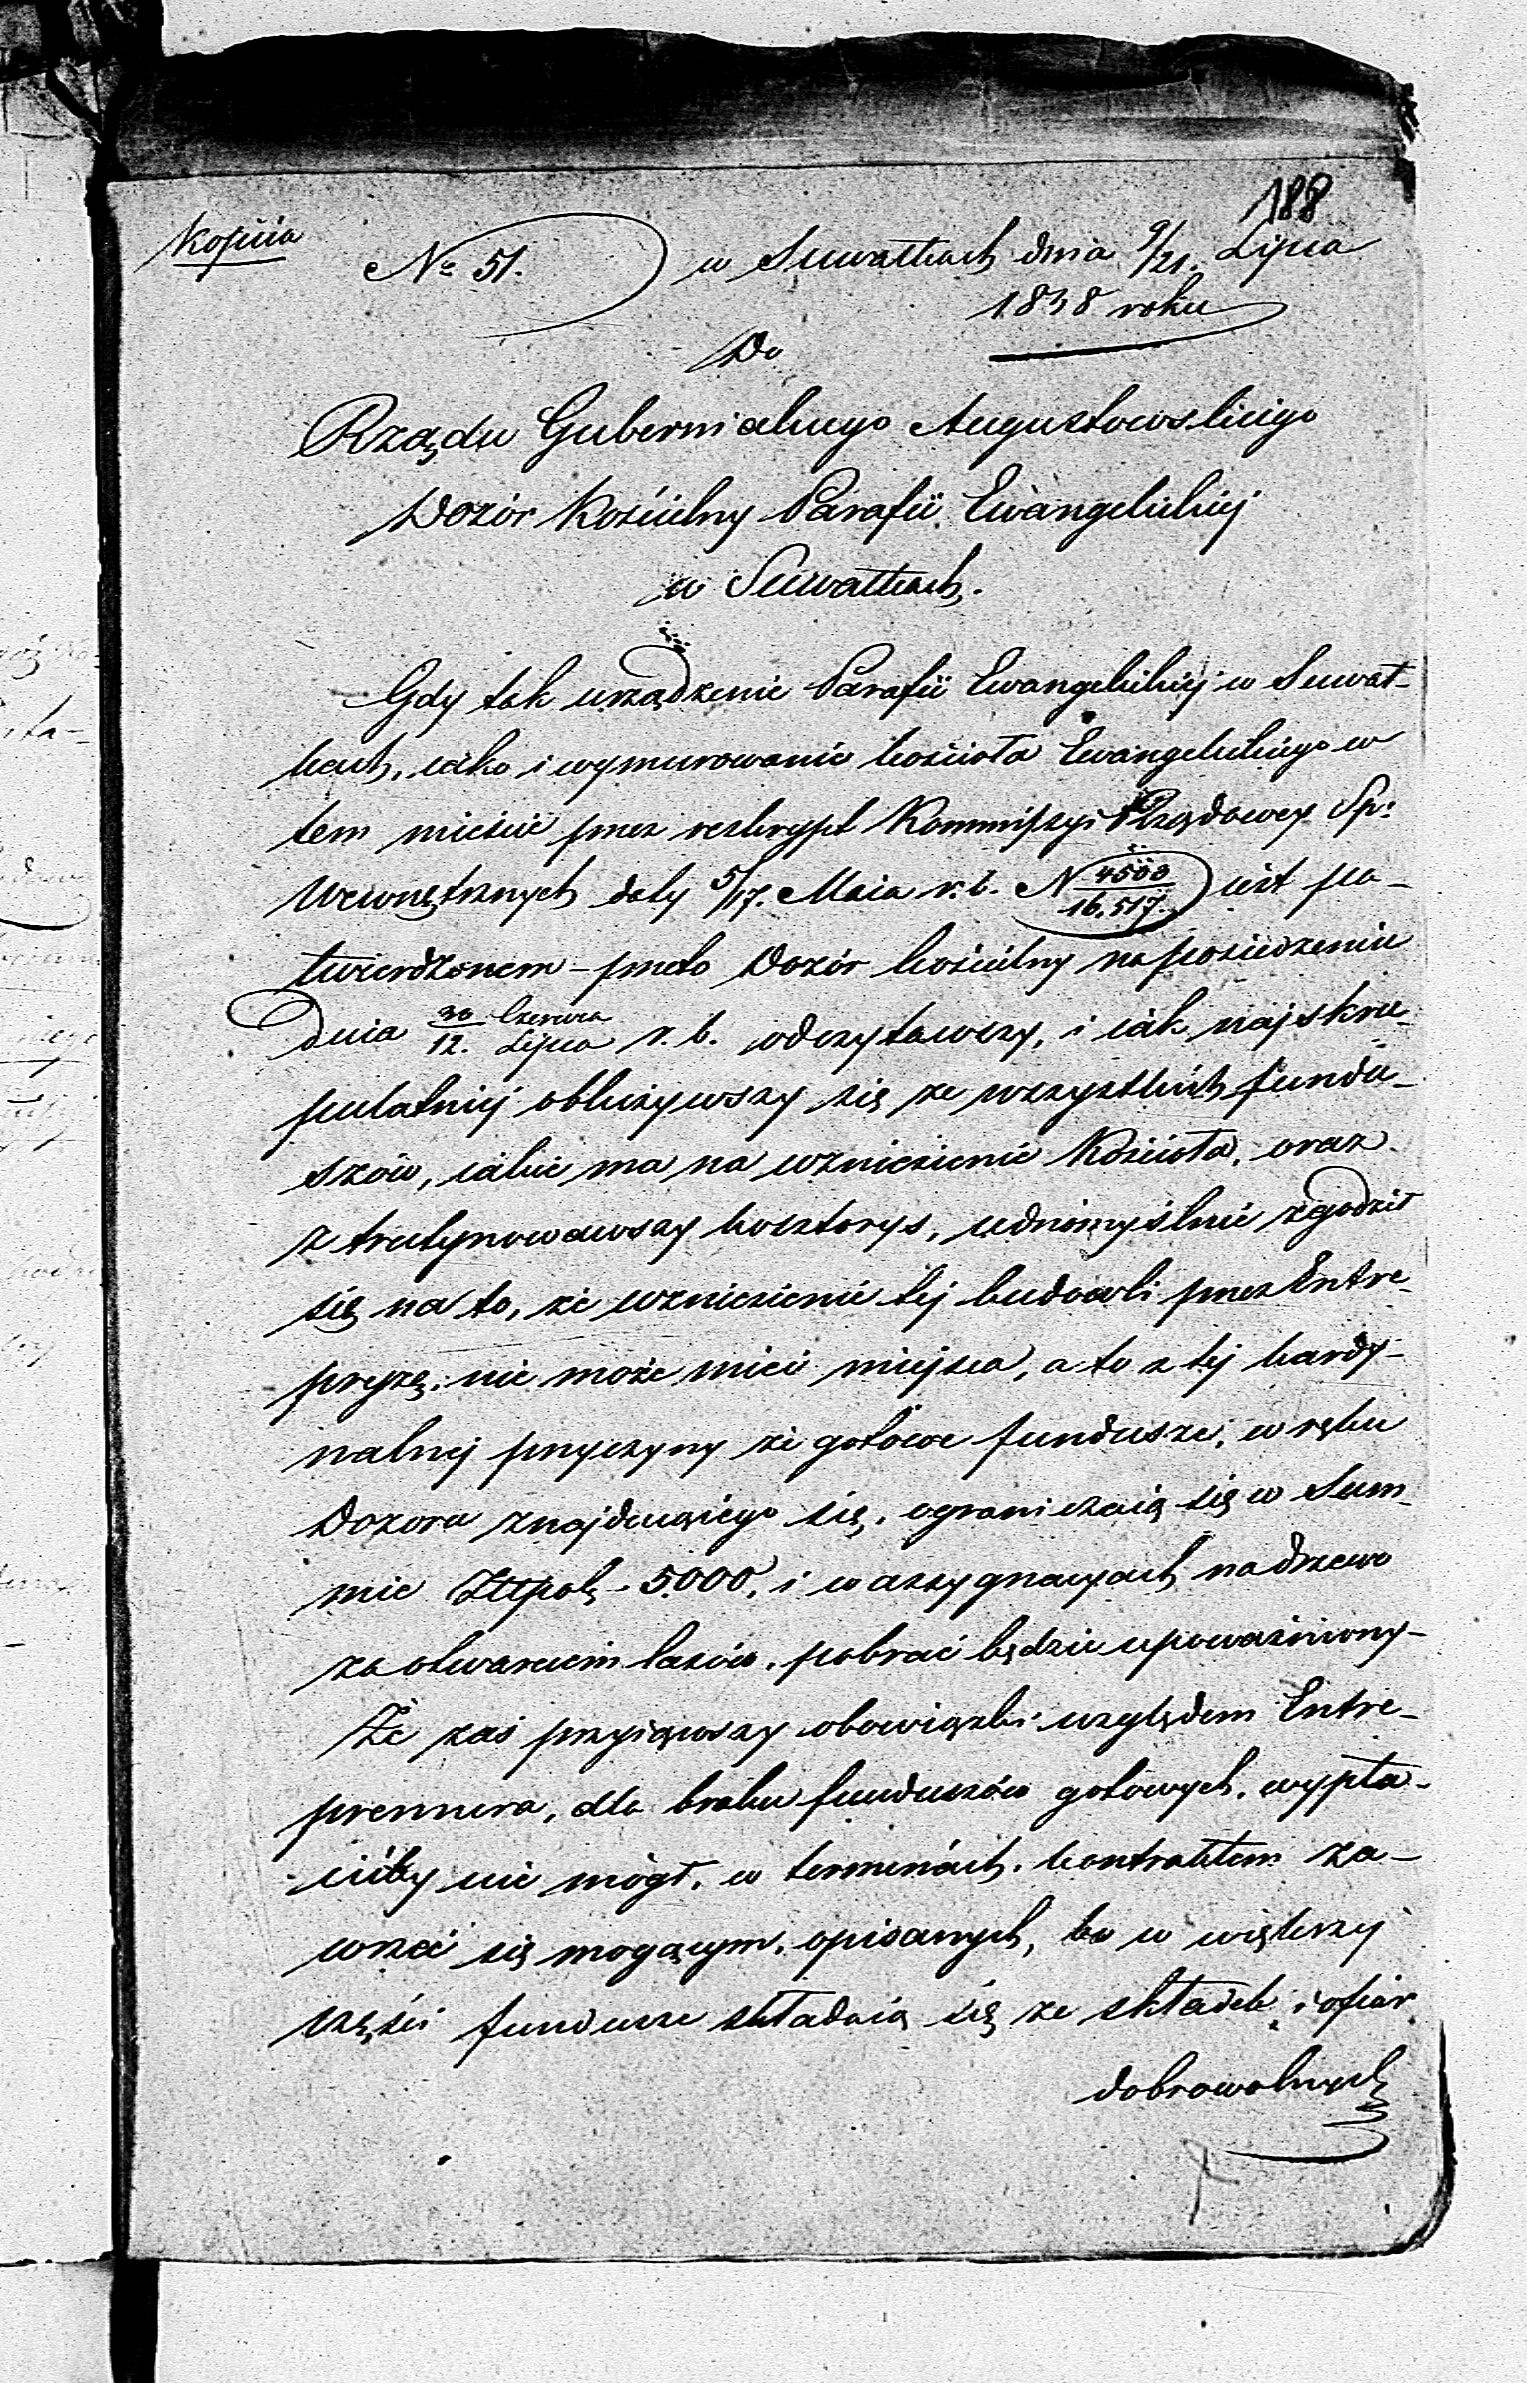 188
Kopiia
№ 51. w Suwałkach dnia 9/21. Lipca
1838 roku
Do
Rządu Gubernialnego Augustowskiego
Dozór Kościelny Parafii Ewangelickiej
w Suwałkach.
Gdy tak urządzenie Parafii Ewangelickiej w Suwał-
kach, iako i wymurowanie kościoła Ewangelickiego w
tem mieście przez reskrypt Kommissyi Rządowey Sp:
Wewnętrznych daty 5/17. Maia r. b. N 4500/16,517. iest po-
twierdzonem - przeto Dozór kościelny na posiedzeniu
dnia 30 Czerwca/12. Lipca r. b. odczytawszy, i iak najskru-
pulatniej obliczywszy się ze wszystkich fundu-
szów, iakie ma na wzniesienie Kościoła, oraz
z trutynowawszy kosztorys, iednomyślnie zgodził
się na to, że wzniesienie tej budowli przez Entre-
pryzę, nie może mieć miejsca, a to z tej kardy-
nalnej przyczyny że gotowe fundusze, w ręku
Dozoru znajduiącego się, ograniczaią się w Sum-
mie Złtpols - 5000, i w assygnacyach na drzewo
za otwarciem lasów, pobrać będzie upoważniony -
Że zaś przyiąwszy obowiązki względem Entre-
prennera, dla braku funduszów gotowych, wypła-
cićby nie mógł, w terminach, kontraktem za-
wrzeć się mogącym, opisanych, bo w większej
części fundusze składaią się ze składek i ofiar
dobrowolnych